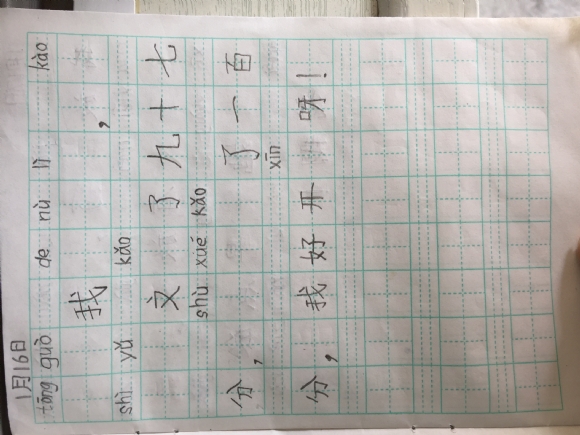 1月16日
tōng guò de nù lì kào
我，
shì yǔ kǎo
文了九十七
shù xué kǎo
分，了一百
xīn
分，我好开呀！